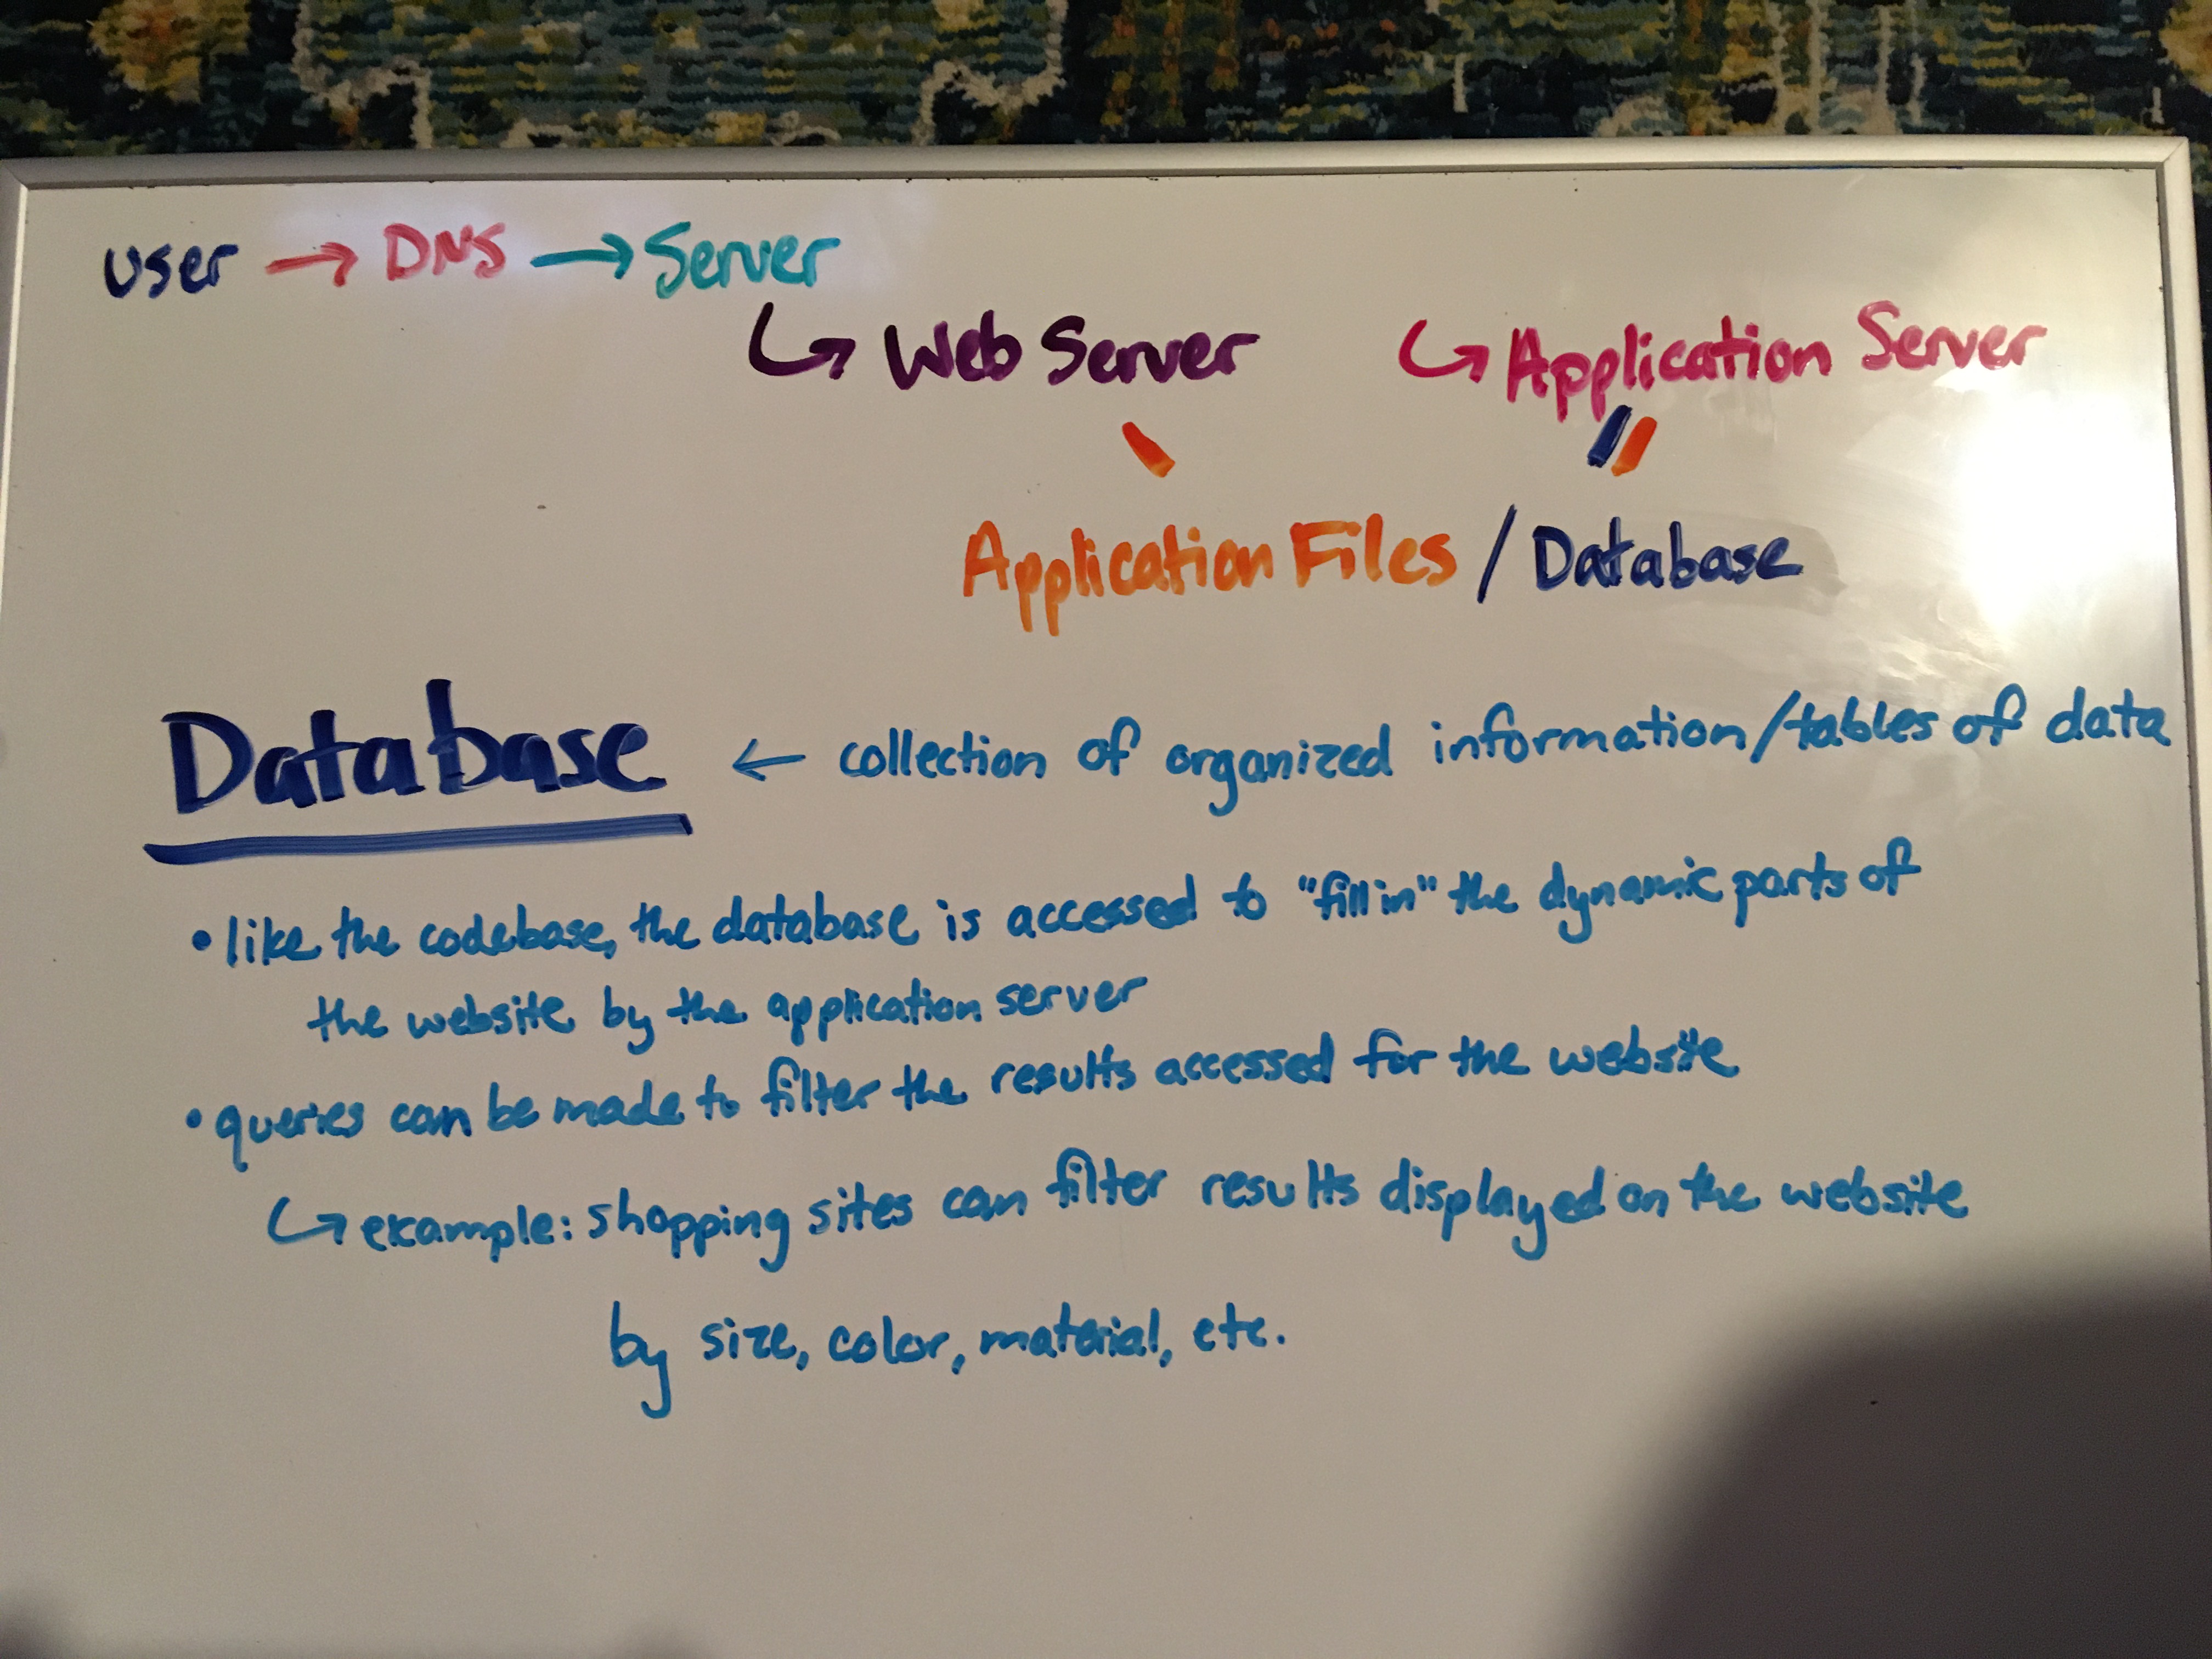 user → DNS → Server
↳ Web Server ↳ Application Server
Application Files / Database
Database ← collection of organized information/tables of data
• like the codebase, the database is accessed to "fill in" the dynamic parts of
the website by the application server
• queries can be made to filter the results accessed for the website
↳ example: shopping sites can filter results displayed on the website
by size, color, material, etc.